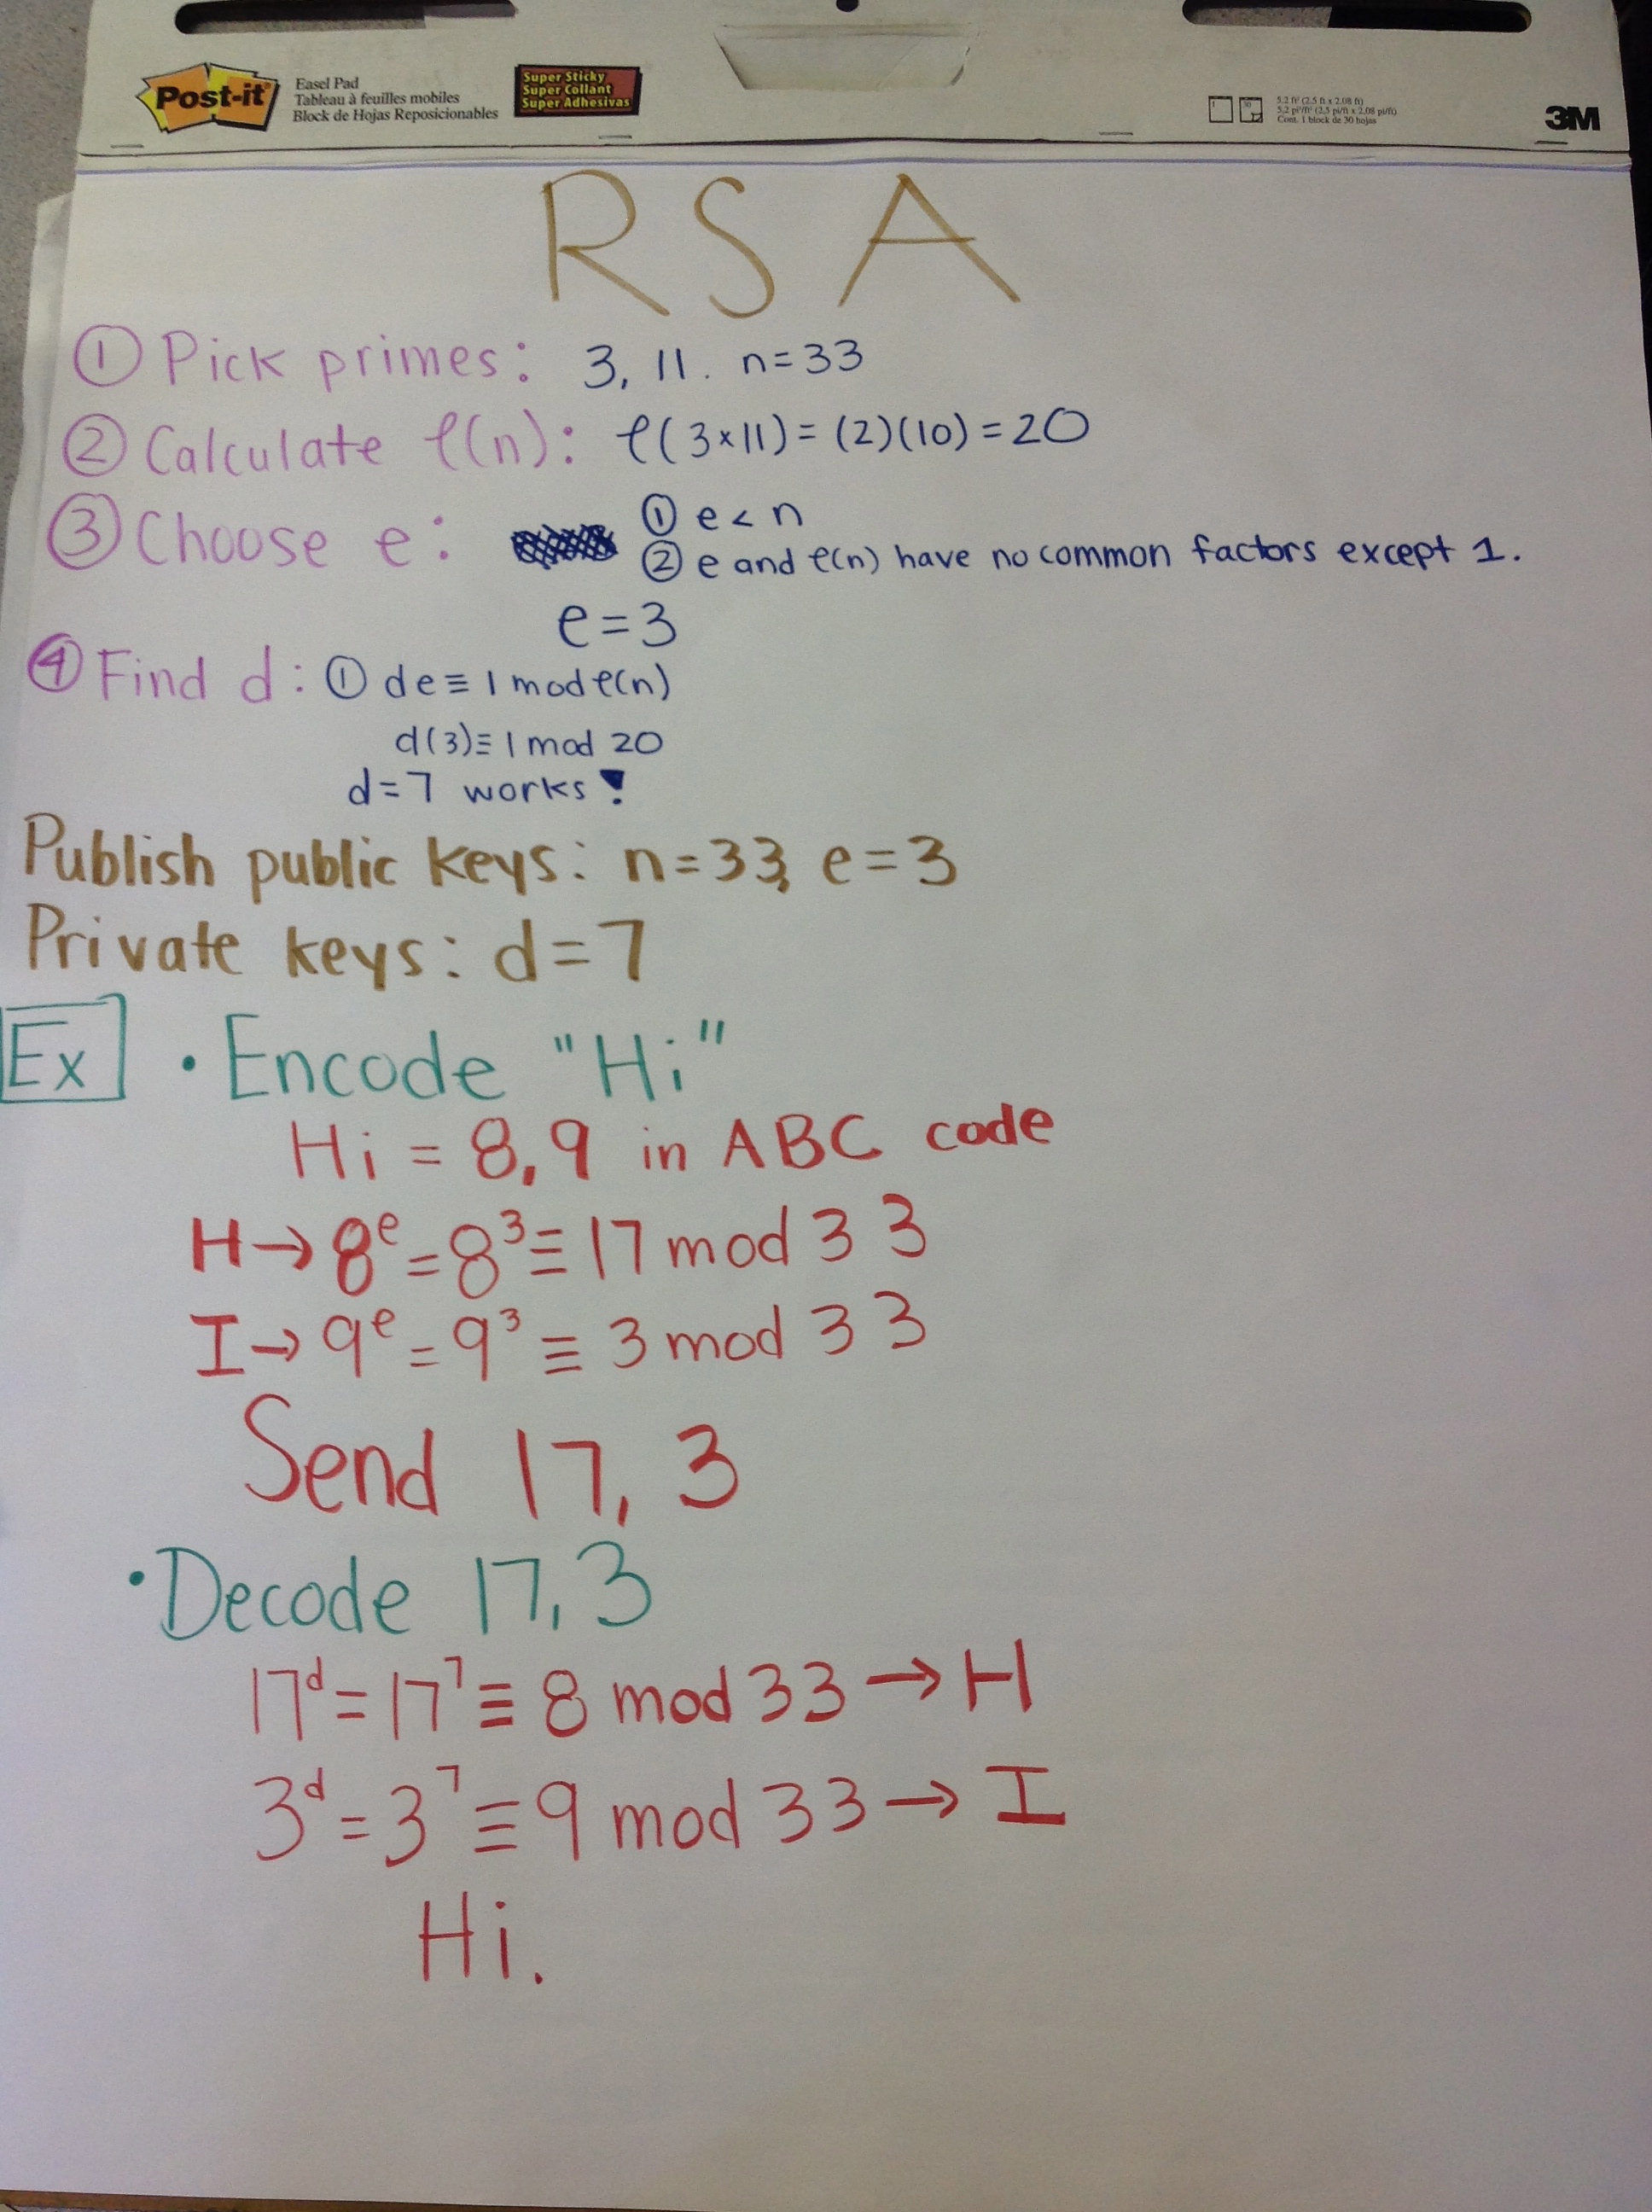 Post-it
Easel Pad
Tableau à feuilles mobiles
Block de Hojas Reposicionables
Super Sticky
Super Collant
Super Adhesivas
5.2 ft² (2.5 ft x 2.08 ft)
5.2 pi²/ft² (2,5 pi/ft x 2,08 pi/ft)
Cont. 1 block de 30 hojas
3M
RSA
① Pick primes: 3, 11. n=33
② Calculate ℓ(n): ℓ(3×11) = (2)(10) = 20
③ Choose e: ① e < n
② e and ℓ(n) have no common factors except 1.
e=3
④ Find d: ① de ≡ 1 mod ℓ(n)
d(3) ≡ 1 mod 20
d=7 works!
Publish public keys: n=33, e=3
Private keys: d=7
Ex • Encode "Hi"
Hi = 8,9 in ABC code
H → 8^e = 8³ ≡ 17 mod 33
I → 9^e = 9³ ≡ 3 mod 33
Send 17, 3
• Decode 17,3
17^d = 17⁷ ≡ 8 mod 33 → H
3^d = 3⁷ ≡ 9 mod 33 → I
Hi.